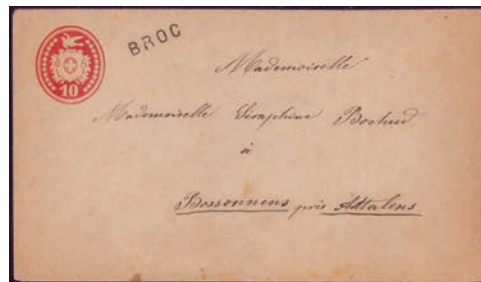 BROC
10
Mademoiselle
Mademoiselle Séraphine Bochud
à
Bossonnens près Attalens